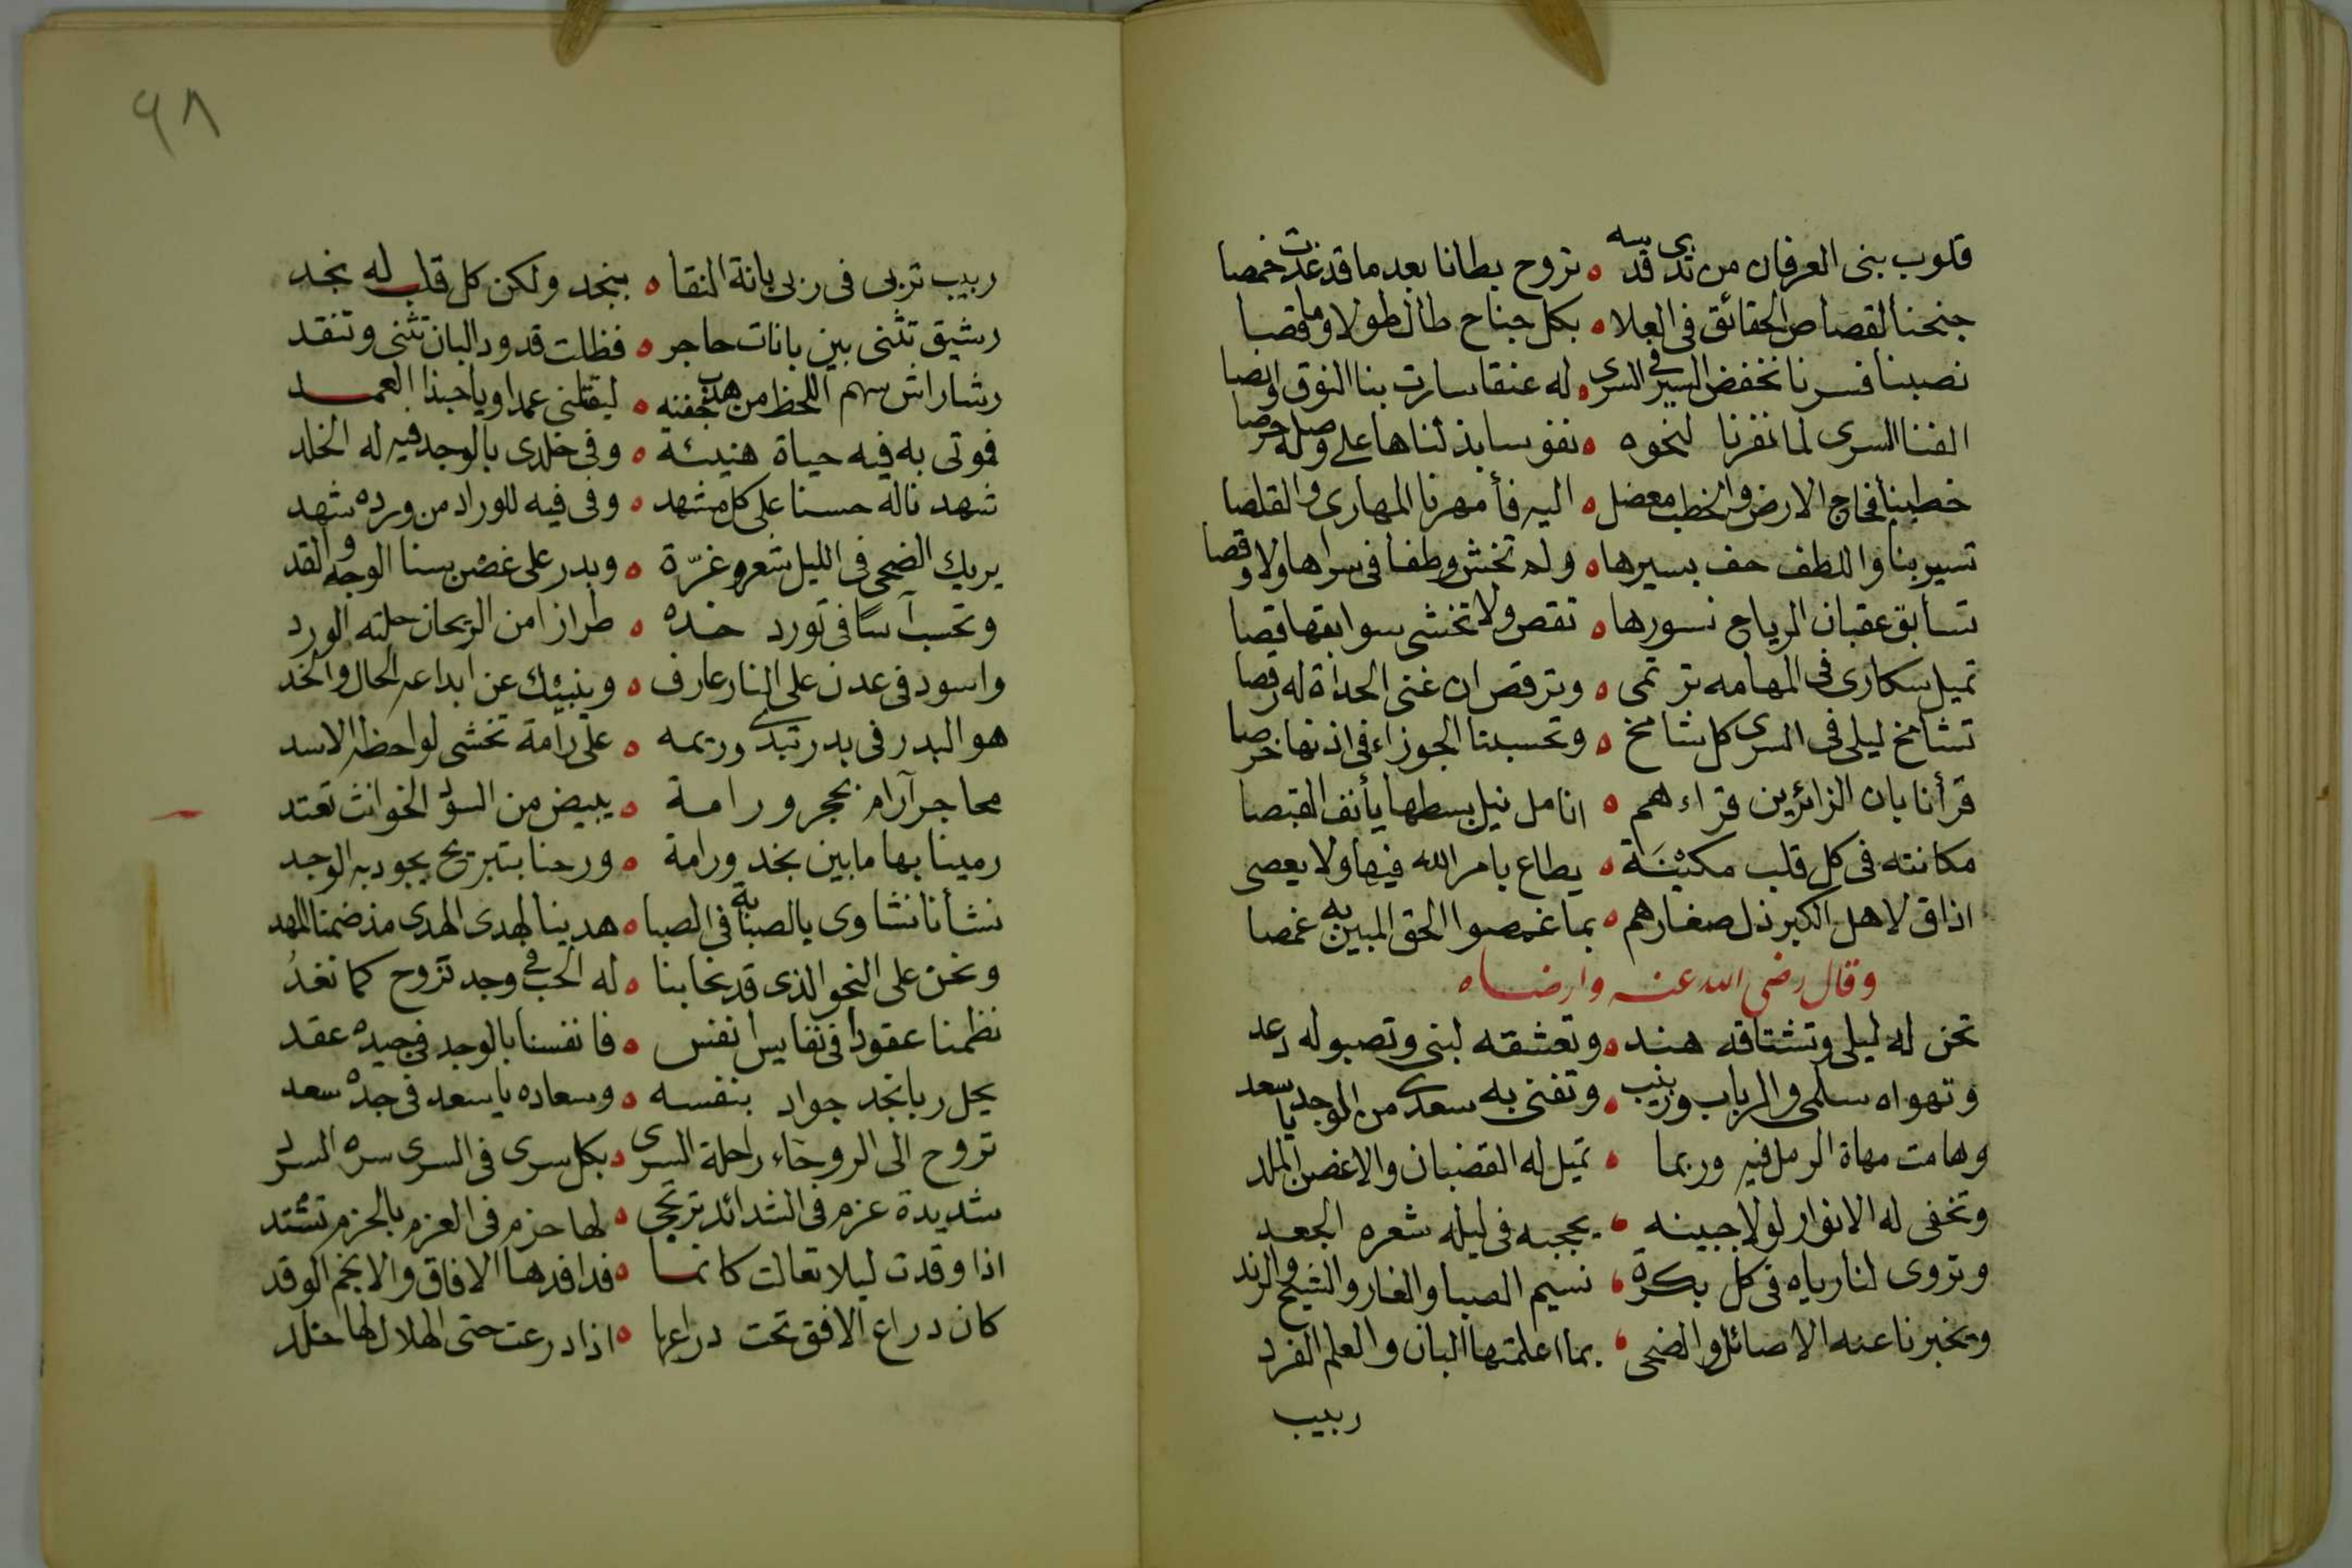 قلوب بنى العرفان من ثدى قدسه ه تروح بطانا بعد ما قد غدت خمصا
جنحنا لقصاص الحقائق فى العلا ه بكل جناح طال طولا وما قصا
نصبنا فسرنا نخفض السير فى السرى ه له عنقا سارت بنا النوق او نصا
الفنا السرى لما نفرنا لنحوه ه نفوسا بذلناها على وصله حرصا
خطبنا فجاج الارض والخطب معضل ه اليه فأمهرنا المهارى والقلصا
تسير بنا واللطف حف بسيرها ه ولم تخش وطفا فى سراها ولا وقصا
تسابق عقبان الرياح نسورها ه تقص ولا تخشى سوابقها قصا
تميل سكارى فى المهامه ترتمى ه وترقص ان غنى الحداة له رقصا
تشامخ ليلى فى السرى كل شامخ ه وتحسبنا الجوزاء فى اذنها خرصا
قرأنا بان الزائرين قراءهم ه انامل نيل بسطها يأنف القبصا
مكانته فى كل قلب مكينة ه يطاع بامر الله فيها ولا يعصى
اذاق لاهل الكبر ذل صغارهم ه بما غمصوا الحق المبين به غمصا
وقال رضى الله عنه وارضاه
تحن له ليلى وتشتاقه هند ه وتعشقه لبنى وتصبو له دعد
وتهواه سلمى والرباب وزينب ه وتفنى به سعدى من الوجد يا سعد
وهامت مهاة الرمل فيه وربما ه تميل له القضبان والاغصن الملد
وتخفى له الانوار لولا جبينه ه يحجبه فى ليله شعره الجعد
وتروى لنا رياه فى كل بكرة ه نسيم الصبا والغار والشيح والرند
وتخبرنا عنه الاصائل والضحى ه بما اعلمتها البان والعلم الفرد
ربيب
٩٨
ربيب تربى فى ربى بانة النقا ه بنجد ولكن كل قلب له نجد
رشيق تثنى بين بانات حاجر ه فظلت قدود البان تثنى وتنقد
رشا راش سهم اللحظ من هدب جفنه ه ليقتلنى عمدا ويا حبذا العمد
فموتى به فيه حياة هنيئة ه وفى خلدى بالوجد فيه له الخلد
شهدناله حسنا على كل مشهد ه وفى فيه للوراد من ورده شهد
يريك الضحى فى الليل شعر وغرّة ه وبدر على غصن بسنا الوجه والقد
وتحسب آسًا فى تورد خده ه طرازا من الريحان حلته الورد
واسود فى عدن على النار عارف ه وينبئك عن ابداعه الخال والخد
هو البدر فى بدر تبدى وريمه ه على رامة تخشى لواحظه الاسد
محاجر آرام بحجر ورامة ه ببيض من السود الخوانث تعتد
رمينا بها ما بين نجد ورامة ه ورحنا بتبريح يجود به الوجد
نشأنا نشاوى بالصبابة فى الصبا ه هدينا لهدى الهدى مذ ضمنا المهد
ونحن على النحو الذى قد نحا بنا ه له الحب فى وجد تروح كما نغدُ
نظمنا عقودا فى نفايس انفس ه فانفسنا بالوجد فى جيده عقد
يحل ربا نجد جواد بنفسه ه وسعاده يا سعد فى جده سعد
تروح الى الروحاء راحلة السرى ه بكل سرى فى السرى سره السرد
شديدة عزم فى الشدائد ترتجى ه لها حزم فى العزم بالحزم تشتد
اذا وقدت ليلا تعالت كانما ه فدافدها الافاق والانجم الوقد
كان دراع الافق تحت دراعها ه اذا درعت حتى الهلال لها خلد